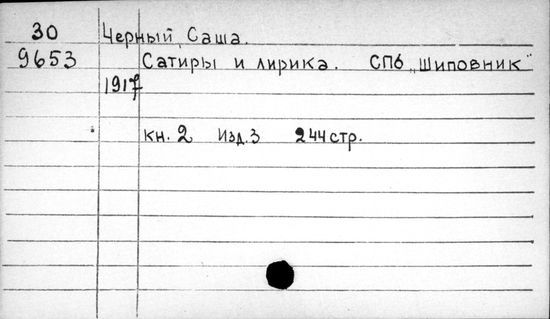 30 Черный Саша.
9653 Сатиры и лирика. СПб „Шиповник"
1917
кн. 2 Изд. 3 244 стр.